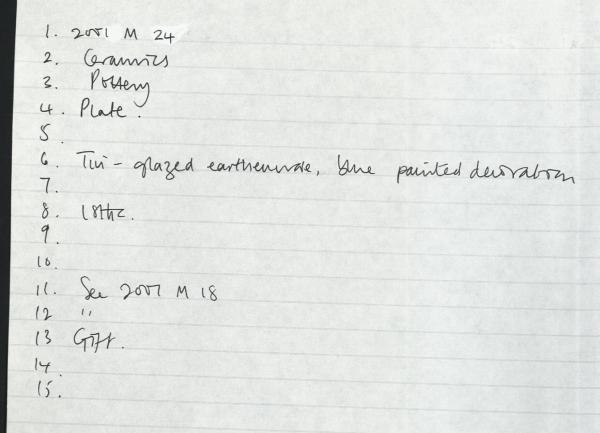 1. 2001 M 24
2. Ceramics
3. Pottery
4. Plate.
5.
6. Tin-glazed earthenware, blue painted decoration
7.
8. 18thc.
9.
10.
11. See 2001 M 18
12 "
13 Gift.
14.
15.